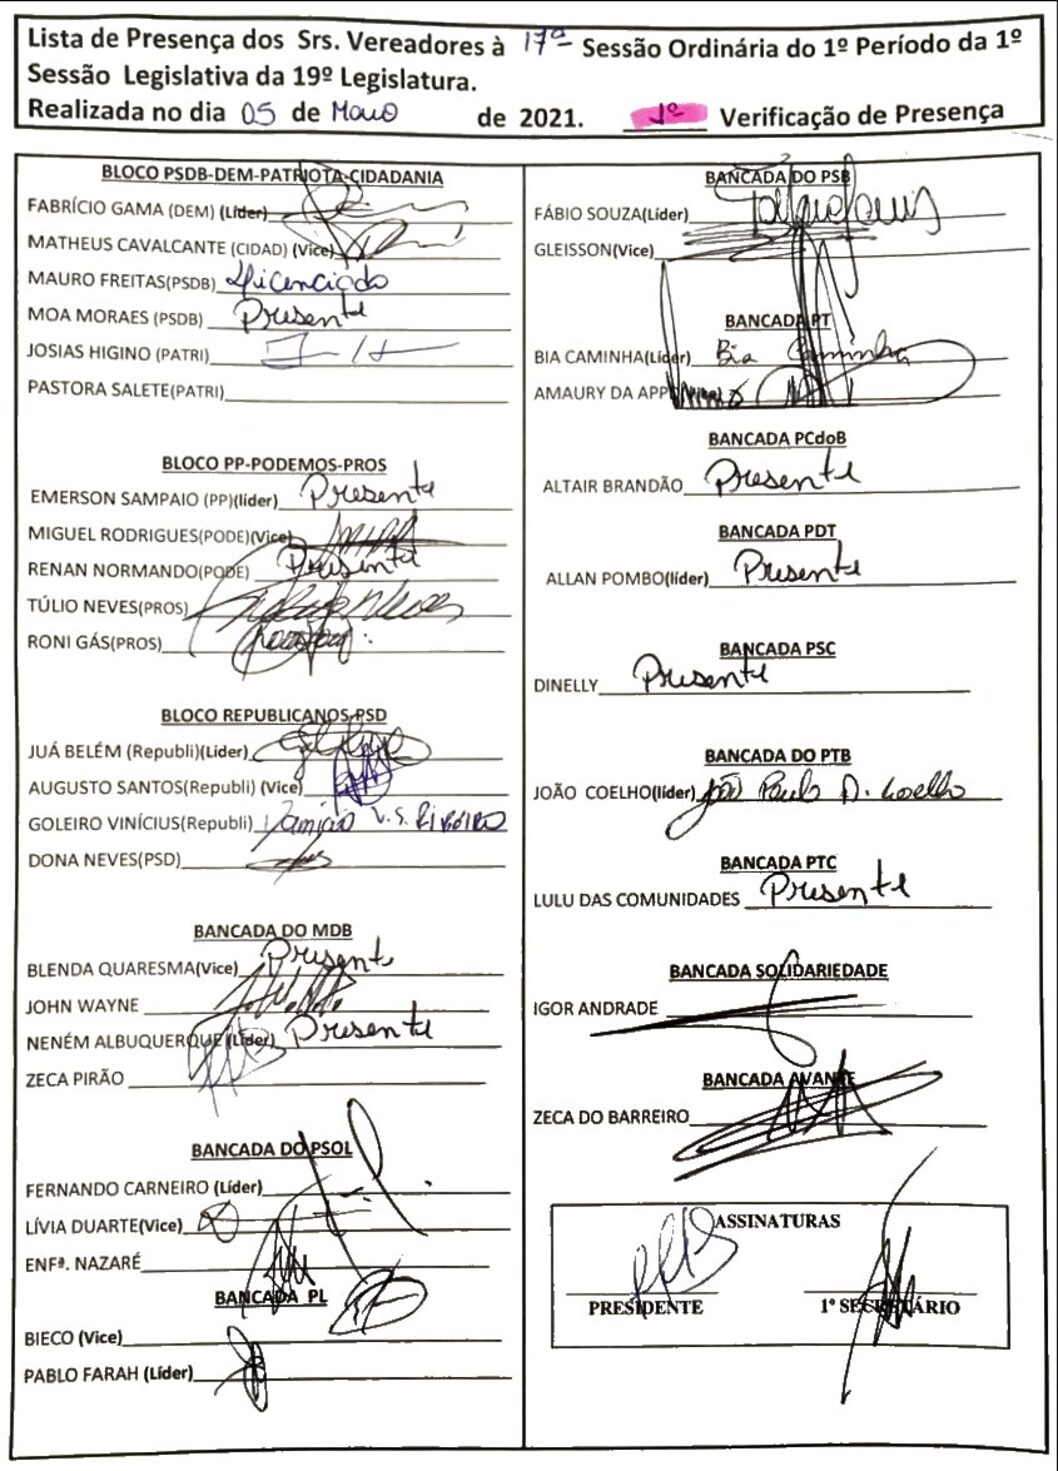 Lista de Presença dos Srs. Vereadores à 17ª Sessão Ordinária do 1º Período da 1º
Sessão Legislativa da 19º Legislatura.
Realizada no dia 05 de Maio de 2021. 1º Verificação de Presença
BLOCO PSDB-DEM-PATRIOTA-CIDADANIA
FABRÍCIO GAMA (DEM) (Líder)
MATHEUS CAVALCANTE (CIDAD) (Vice)
MAURO FREITAS(PSDB) Licenciado
MOA MORAES (PSDB) Presente
JOSIAS HIGINO (PATRI)
PASTORA SALETE(PATRI)
BLOCO PP-PODEMOS-PROS
EMERSON SAMPAIO (PP)(líder) Presente
MIGUEL RODRIGUES(PODE)(Vice)
RENAN NORMANDO(PODE) Presente
TÚLIO NEVES(PROS)
RONI GÁS(PROS)
BLOCO REPUBLICANOS-PSD
JUÁ BELÉM (Republi)(Líder)
AUGUSTO SANTOS(Republi) (Vice)
GOLEIRO VINÍCIUS(Republi) V.S. Ribeiro
DONA NEVES(PSD)
BANCADA DO MDB
BLENDA QUARESMA(Vice) Presente
JOHN WAYNE
NENÉM ALBUQUERQUE (Líder) Presente
ZECA PIRÃO
BANCADA DO PSOL
FERNANDO CARNEIRO (Líder)
LÍVIA DUARTE(Vice)
ENFª. NAZARÉ
BANCADA PL
BIECO (Vice)
PABLO FARAH (Líder)
BANCADA DO PSB
FÁBIO SOUZA(Líder)
GLEISSON(Vice)
BANCADA PT
BIA CAMINHA(Líder) Bia Caminha
AMAURY DA APPD
BANCADA PCdoB
ALTAIR BRANDÃO Presente
BANCADA PDT
ALLAN POMBO(líder) Presente
BANCADA PSC
DINELLY Presente
BANCADA DO PTB
JOÃO COELHO(líder) João Paulo A. Coelho
BANCADA PTC
LULU DAS COMUNIDADES Presente
BANCADA SOLIDARIEDADE
IGOR ANDRADE
BANCADA AVANTE
ZECA DO BARREIRO
ASSINATURAS
PRESIDENTE 1º SECRETÁRIO